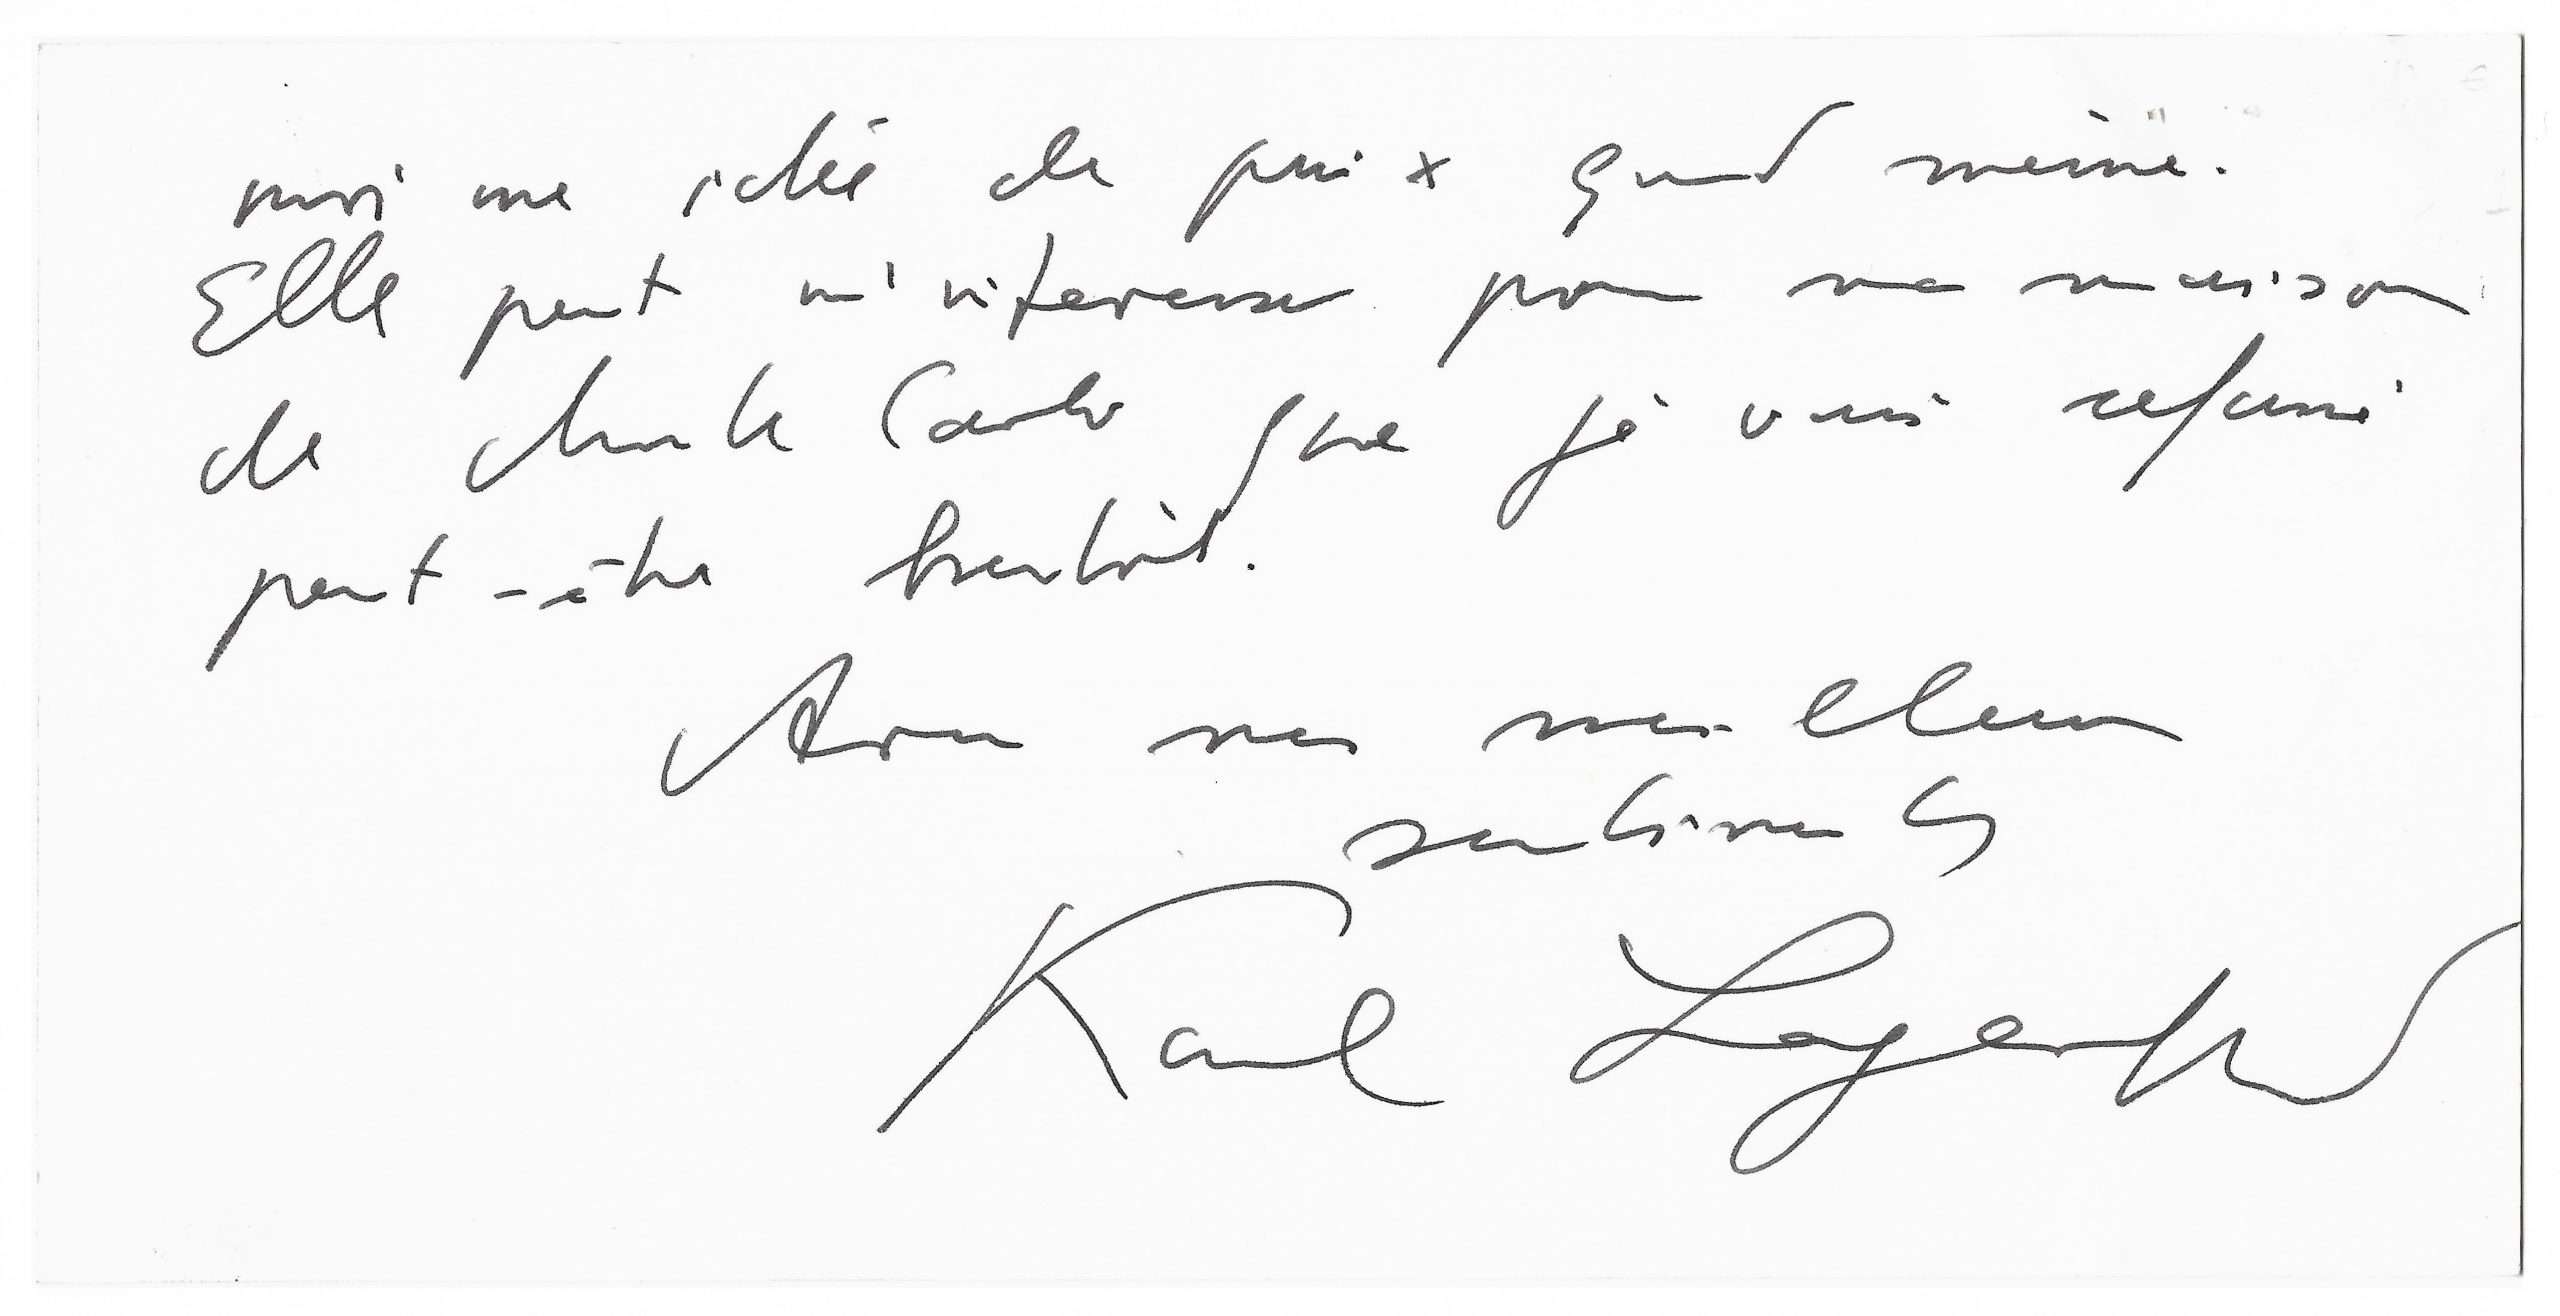 moi une idée de prix quand même.
Elle peut m'intéresser pour ma maison
de Monte Carlo que je vais refaire
peut-être bientôt.
Avec mes meilleurs
sentiments
Karl Lagerfeld